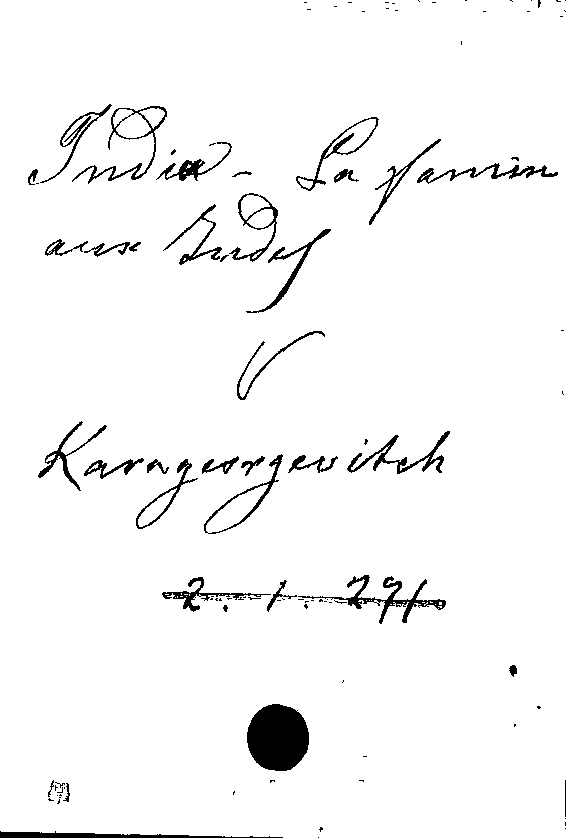 India - La famine
aux Indes
V
Karageorgevitch
2. 1. 291